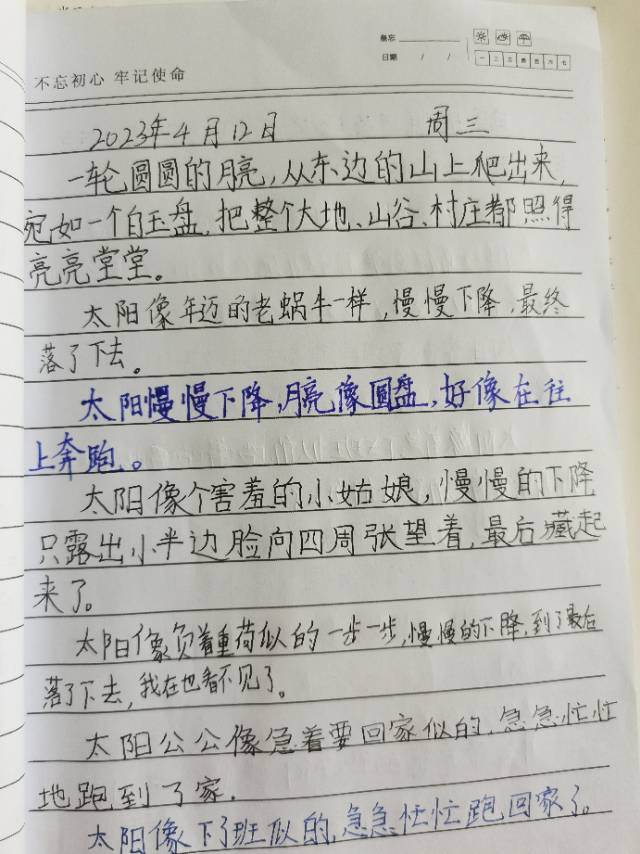 备忘
日期 / /
一 二 三 四 五 六 七
不忘初心 牢记使命
2023年4月12日 周三
一轮圆圆的月亮,从东边的山上爬出来,
宛如一个白玉盘,把整个大地、山谷、村庄都照得
亮亮堂堂。
太阳像年迈的老蜗牛一样,慢慢下降,最终
落了下去。
太阳慢慢下降,月亮像圆盘,好像在往
上奔跑。
太阳像个害羞的小姑娘,慢慢的下降
只露出小半边脸向四周张望着,最后藏起
来了。
太阳像负着重荷似的一步一步,慢慢的下降,到了最后
落了下去,我在也看不见了。
太阳公公像急着要回家似的,急急忙忙
地跑到了家.
太阳像下了班似的,急急忙忙跑回家了。